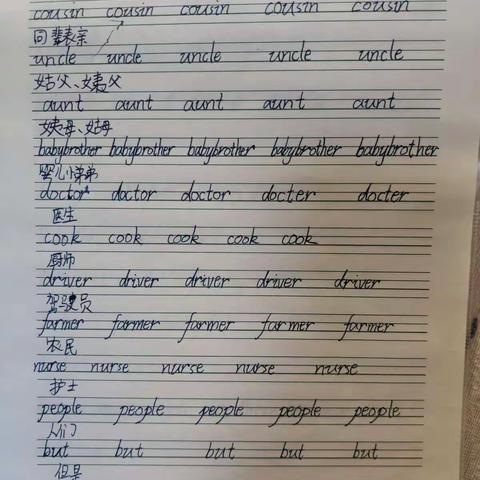 cousin cousin cousin cousin cousin
同辈表亲
uncle uncle uncle uncle uncle
姑父、姨父
aunt aunt aunt aunt aunt
姨母、姑母
babybrother babybrother babybrother babybrother babybrother
婴儿小弟弟
doctor doctor doctor docter docter
医生
cook cook cook cook cook
厨师
driver driver driver driver driver
驾驶员
farmer farmer farmer farmer farmer
农民
nurse nurse nurse nurse nurse
护士
people people people people people
人们
but but but but but
但是